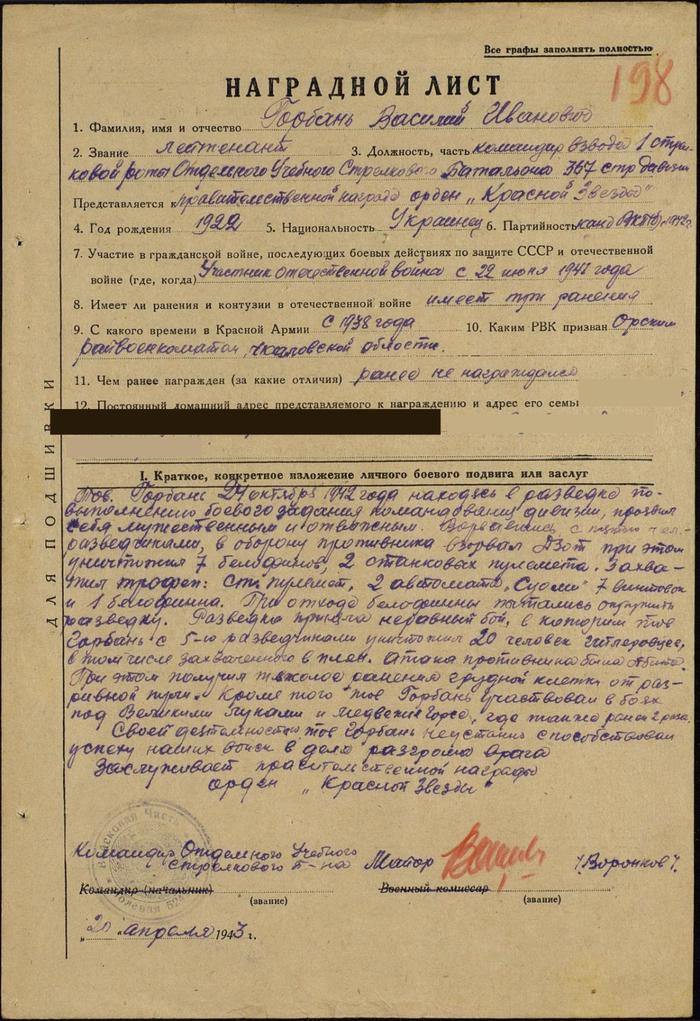 Все графы заполнять полностью
198
НАГРАДНОЙ ЛИСТ
1. Фамилия, имя и отчество Горбань Василий Иванович
2. Звание лейтенант 3. Должность, часть командир взвода 1 стрел-
ковой роты Отдельного Учебного Стрелкового Батальона 367 стр дивизии
Представляется к правительственной награде орден „Красной Звезды"
4. Год рождения 1922 5. Национальность Украинец 6. Партийность канд ВКП(б) с 1942г.
7. Участие в гражданской войне, последующих боевых действиях по защите СССР и отечественной
войне (где, когда) Участник отечественной войны с 22 июня 1941 года
8. Имеет ли ранения и контузии в отечественной войне имеет три ранения
9. С какого времени в Красной Армии с 1938 года 10. Каким РВК призван Орским
райвоенкоматом, Чкаловской области.
11. Чем ранее награжден (за какие отличия) ранее не награждался
12. Постоянный домашний адрес представляемого к награждению и адрес его семьи
ДЛЯ ПОДШИВКИ
I. Краткое, конкретное изложение личного боевого подвига или заслуг
Тов. Горбань 24 октября 1942 года находясь в разведке по
выполнению боевого задания командования дивизии, проявил
себя мужественным и отважным. Ворвавшись с
разведчиками, в оборону противника взорвал ДЗОТ при этом
уничтожил 7 белофинов, 2 станковых пулемета. Захва-
тил трофеи: ст. пулемет, 2 автомата „Суоми" 7 винтовок
и 1 белофинна. При отходе белофинны пытались окружить
разведку. Разведка приняла неравный бой, в котором тов
Горбань с 5-ю разведчиками уничтожил 20 человек гитлеровцев,
в том числе захваченного в плен. Атака противника была отбита.
При этом получил тяжолое ранение грудной клетки от раз-
рывной пули. Кроме того тов Горбань участвовал в боях
под Великими Луками и Медвежьегорск, где также ранен 2 раза.
Своей деятельностью тов Горбань неустанно способствовал
успеху наших войск в деле разгрома врага
Заслуживает правительственной награды
орден „Красной Звезды"
Войсковая Часть
Полевая
Командир Отдельного Учебного
Стрелкового Б-на Майор /Воронков/.
Командир (начальник) Военный комиссар
(звание) (звание)
„20" апреля 1943 г.